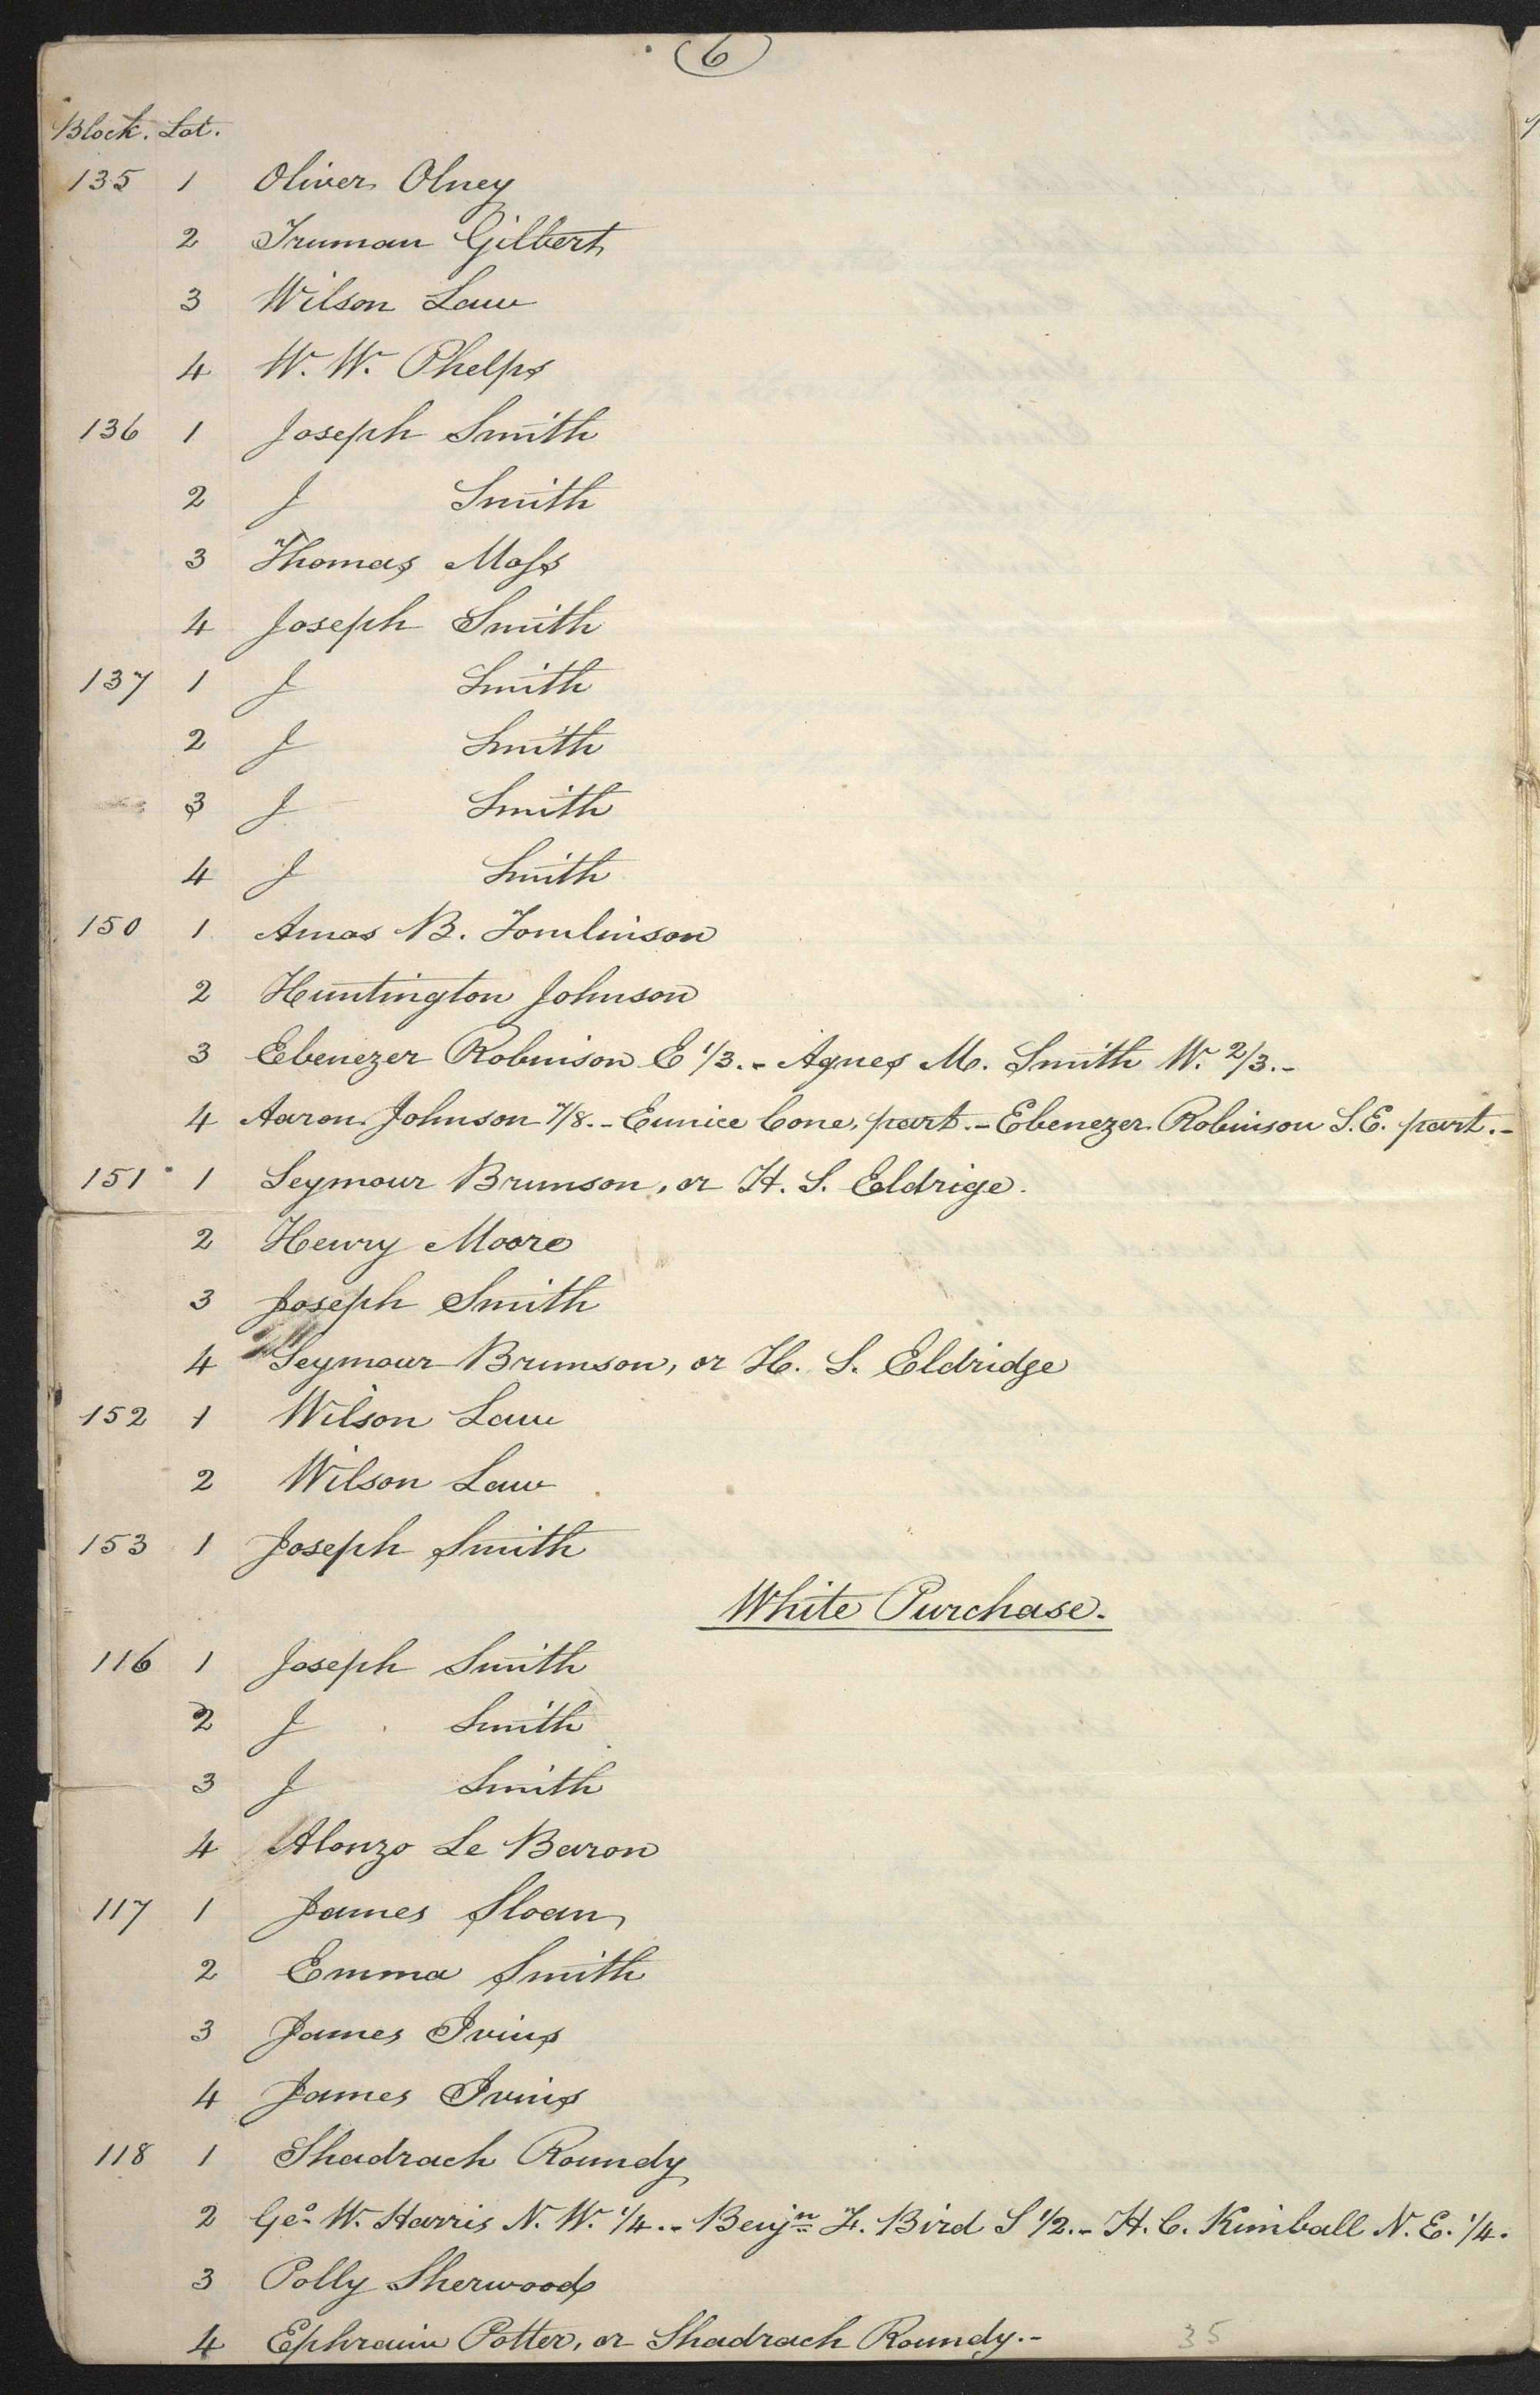 6
Block. Lot.
135 1 Oliver Olney
2 Truman Gilbert
3 Wilson Law
4 W. W. Phelps
136 1 Joseph Smith
2 J Smith
3 Thomas Moss
4 Joseph Smith
137 1 J Smith
2 J Smith
3 J Smith
4 J Smith
150 1 Amos B. Tomlinson
2 Huntington Johnson
3 Ebenezer Robinson E 1/3.- Agnes M. Smith W. 2/3.-
4 Aaron Johnson 7/8.- Eunice Cone, part.- Ebenezer Robinson S.E. part.-
151 1 Seymour Brunson, or H. S. Eldrige.
2 Henry Moore
3 Joseph Smith
4 Seymour Brunson, or H. S. Eldridge
152 1 Wilson Law
2 Wilson Law
153 1 Joseph Smith
White Purchase.
116 1 Joseph Smith
2 J Smith
3 J Smith
4 Alonzo Le Baron
117 1 James Sloan
2 Emma Smith
3 James Ivins
4 James Ivins
118 1 Shadrach Roundy
2 Geo. W. Harris N. W. 1/4.- Benjn F. Bird S 1/2.- H. C. Kimball N. E. 1/4.
3 Polly Sherwood
4 Ephraim Potter, or Shadrach Roundy.-
35